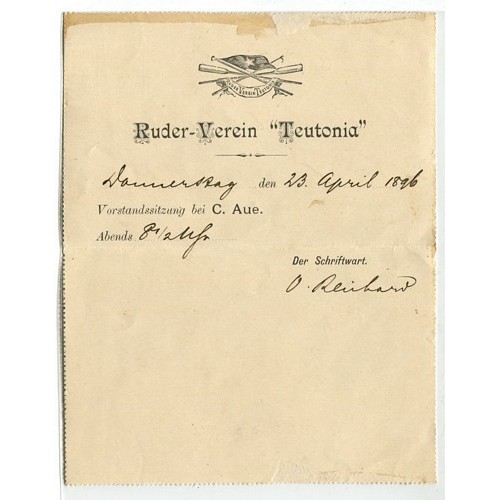 Ruder-Verein "Teutonia"
Donnerstag den 23. April 1896
Vorstandssitzung bei C. Aue.
Abends 8 1/2 Uhr
Der Schriftwart.
O. Reinhard